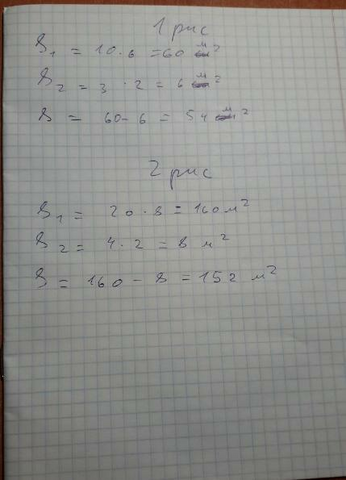 1 рис
S₁ = 10 · 6 = 60 м²
S₂ = 3 · 2 = 6 м²
S = 60 - 6 = 54 м²
2 рис
S₁ = 20 · 8 = 160 м²
S₂ = 4 · 2 = 8 м²
S = 160 - 8 = 152 м²